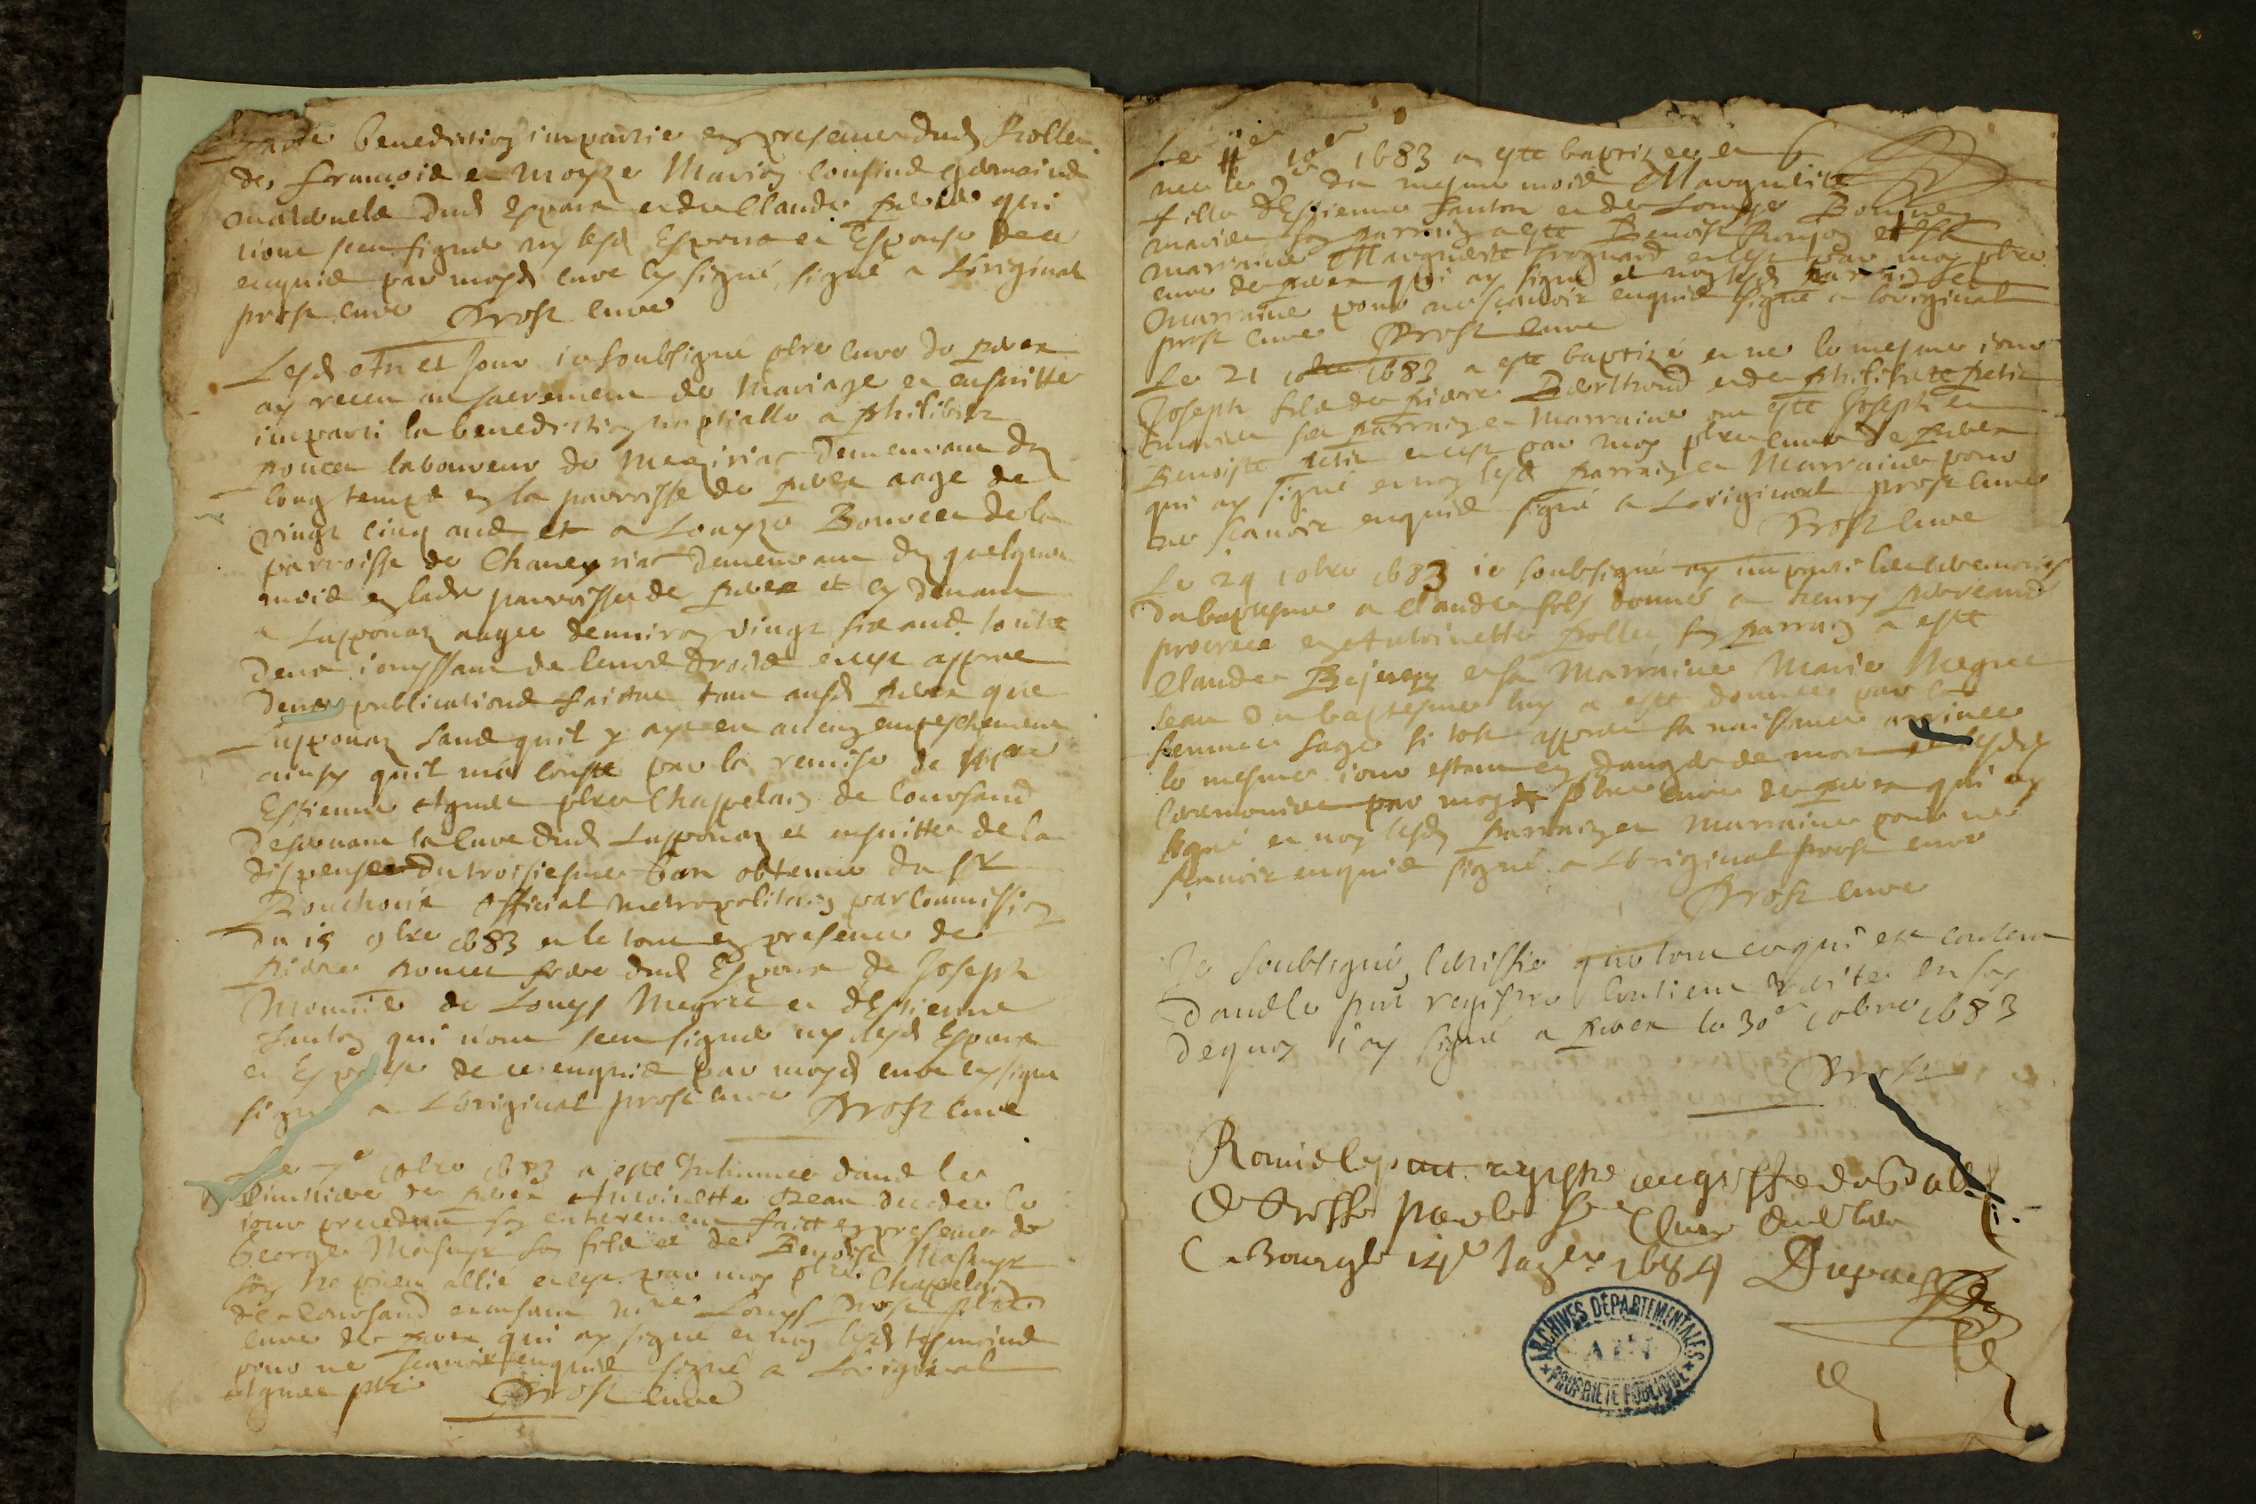 benediction impartie en presence dud Rollet
de francois et Moyze Marion cousins germains
maternels dud Espoux et de Claude qui
n'ont sceu signer ny lesd Espoux et Espouse de ce
enquis par moyd cure soubsigné, signé a l'original
prost cure Prost cure
Lesd an et jour ie soubsigné pbre cure de
ay receu au sacrement de Mariage et ensuitte
imparti la benediction nuptialle a philibert
poncet laboureur de Meziriat demeurant dez
long temps en la parroisse de aagé de
vingt cinq ans et a Louyze Bouvier de la
parroisse de Chaneyriat demeurant dez quelques
mois en lade parroisse de et cy devant
a Lasponaz aagee denviron vingt six ans touts
deux iouyssant de leurs droits et ce appres
deux publications faictes tant aud que
Lasponaz sans quil y aye eu aucun empeschement
ainsy quil m'a conste par la remise de Mre
Estienne Agnez pbre Chappelain de Coursand
deservant la cure dud Lasponaz et ensuitte de la
dispense du troisiesme ban obtenue du Sr
Bouchoux official metropolitain par commission
du 15 9bre 1683 et le tout en presence de
pierre poncet frere dud Espoux de Joseph
Monnier de Louys Megrié et d'Estienne
Fanton qui n'ont sceu signer ny lesd Espoux
et Espouse de ce enquis par moyd cure soubsigne
signé a l'original prost cure Prost cure
Le 7e 10bre 1683 a esté Inhumee dans le
Cimitiere de Antoinette Jean decedee le
iour precedent son enterrement faict en presence de
George Masuyr son fils et de Benoist Masuyr
son nepveu allié et ce par moy pbre Chappelain
de Coursand et Mre Louys Prost pbre
cure de qui ay signé et non lesd tesmoins
pour ne scavoir enquis signé a l'original
Agnez pbre Prost cure
Le 11e 10bre 1683 a esté baptizee et
nee le 9e du mesme mois Marguerite
fille d'Estienne Fanton et de Louyse
mariez son parrain a esté Benoist et sa
marraine Marguerite et ce par moy pbre
cure de qui ay signé et non lesd parrain et
Marraine pour ne scavoir enquis signé a l'original
prost cure Prost cure
Le 21 10bre 1683 a esté baptizé et né le mesme iour
Joseph fils de pierre Berthoud et de philiberte petit
mariez ses parrain et Marraine ont esté Joseph et
Benoiste petit et ce par moy pbre cure de
qui ay signé et non lesd parrain et Marraine pour
ne scavoir enquis signé a L'original prost cure
Prost cure
Le 29 10bre 1683 ie soubsigné ay imparti les ceremonies
du baptesme a Claude fils donné a henry
procreé en Antoinette Rollet, son parrain a esté
Claude et sa Marraine Marie Megrié
leau du baptesme luy a esté donnee par la
femme sage si tost appres sa naissance arrivee
le mesme iour estant en danger de mort et lesd
ceremonies par moyd pbre cure de qui ay
signé et non lesd parrain et Marraine pour ne
scavoir enquis signé a L'original prost cure
Prost cure
Je soubsigné certiffie que tout ce qui est contenu
dans le pnt registre contient verité en foy
dequoy i ay signé a le 30e 10bre 1683
Prost
Remis le pnt registre au greffe du Balliage
de Bresse par le Sr Cure
A Bourg le 14e Janver 1684
ARCHIVES DÉPARTEMENTALES
AIN
PROPRIÉTÉ PUBLIQUE